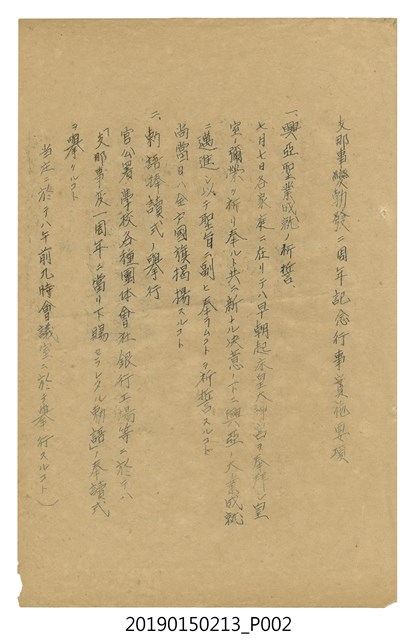 支那事變勃發二周年記念行事實施要項
一、興亞聖業成就ノ祈誓
七月七日各家庭ニ在リテハ早朝起床皇大神宮ヲ奉拜シ皇
室ノ彌榮ヲ祈リ奉ルト共ニ新ナル決意ノ下ニ興亞ノ大業成就
ニ邁進シ以テ聖旨ニ副ヒ奉ラムコトヲ祈誓スルコト
尚當日ハ全戸國旗揭揚スルコト
二、勅語捧讀式ノ擧行
官公署學校各種團体會社銀行工場等ニ於テハ
「支那事變一周年ニ當リ下賜セラレタル勅語」ノ奉讀式
ヲ擧クルコト
(當庄ニ於テハ午前九時會議室ニ於テ擧行スルコト)
20190150213_P002